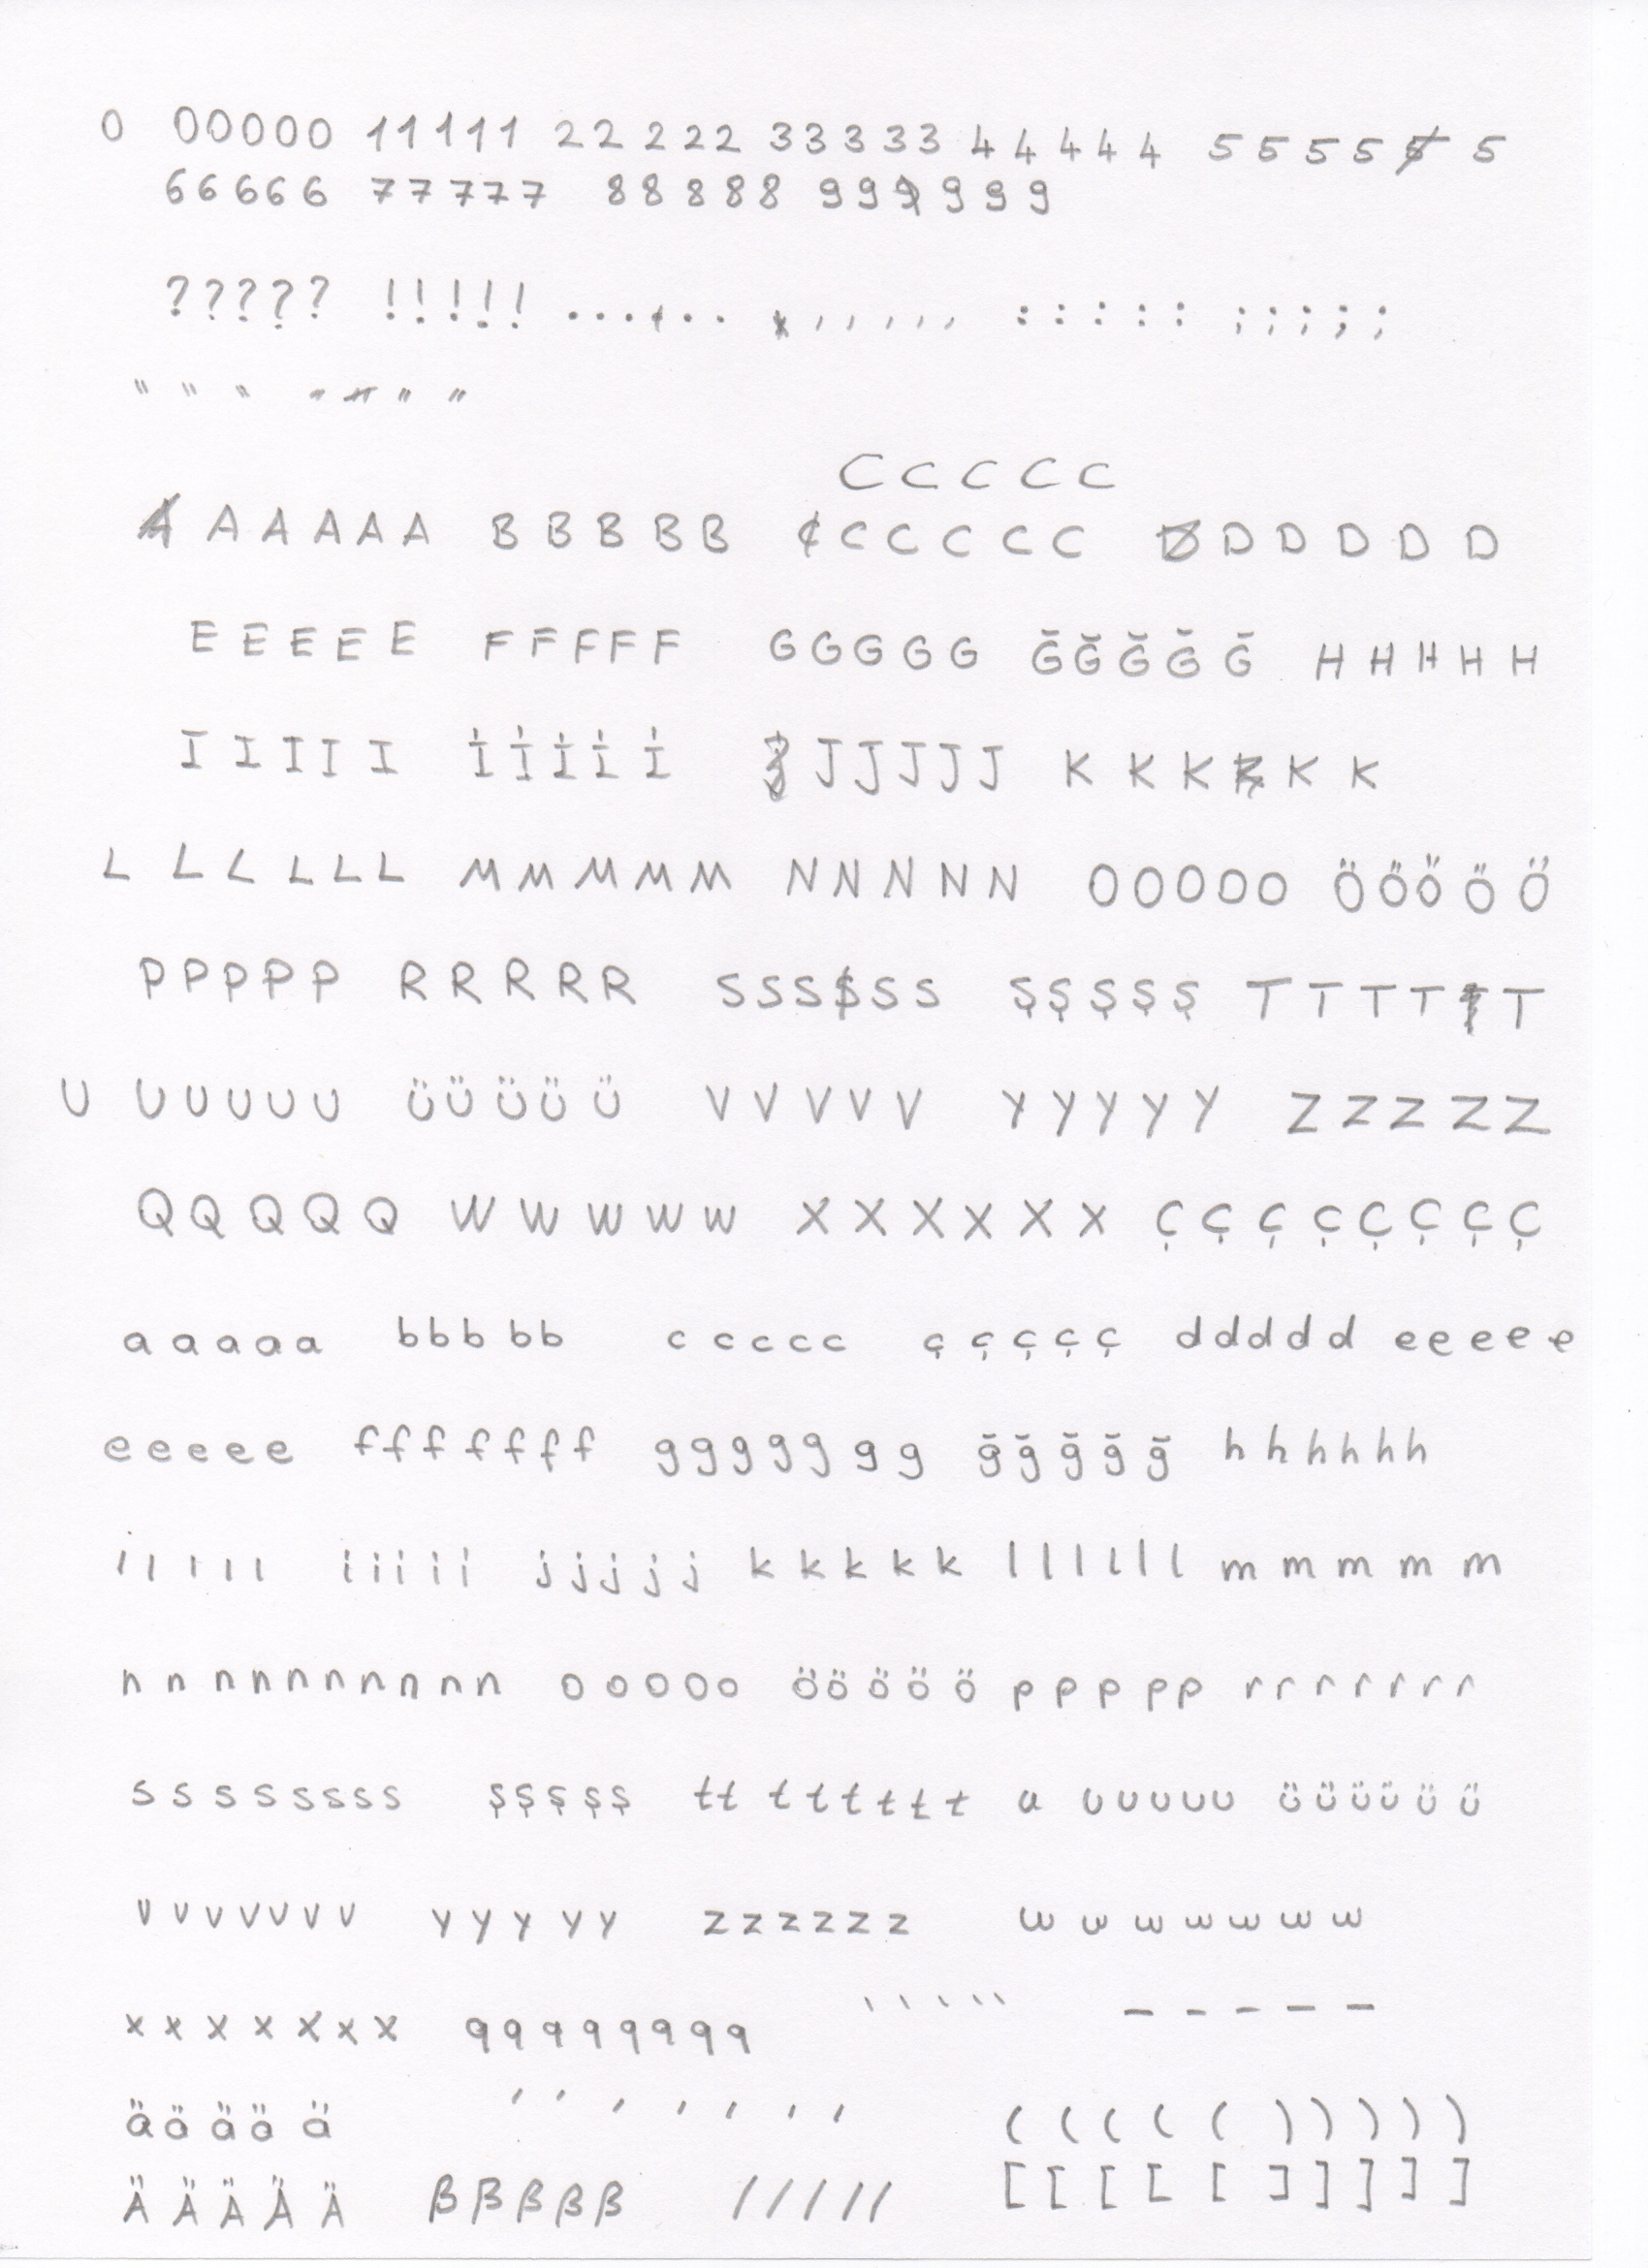 0 00000 11111 22222 33333 44444 5555 5
66666 77777 88888 99 999
????? !!!!! ... .. ,,,,, ::::: ;;;;;
" " " " " "
C C C C C
A A A A A B B B B B C C C C C D D D D D
E E E E E F F F F F G G G G G Ğ Ğ Ğ Ğ Ğ H H H H H
I I I I I İ İ İ İ İ J J J J J K K K K K
L L L L L L M M M M M N N N N N O O O O O Ö Ö Ö Ö Ö
P P P P P R R R R R S S S S S Ş Ş Ş Ş Ş T T T T T
U U U U U U Ü Ü Ü Ü Ü V V V V V Y Y Y Y Y Z Z Z Z Z
Q Q Q Q Q W W W W W X X X X X X Ç Ç Ç Ç Ç Ç Ç Ç
a a a a a b b b b b c c c c c ç ç ç ç ç d d d d d e e e e e
e e e e e f f f f f f f g g g g g g g ğ ğ ğ ğ ğ h h h h h h
ı ı ı ı ı i i i i i j j j j j k k k k k l l l l l l m m m m m
n n n n n n n n n n o o o o o ö ö ö ö ö p p p p p r r r r r r r
s s s s s s s s ş ş ş ş ş t t t t t t t t u u u u u u ü ü ü ü ü ü
v v v v v v v y y y y y z z z z z z w w w w w w w
x x x x x x x q q q q q q q q ` ` ` ` ` - - - - -
ä ä ä ä ä ' ' ' ' ' ' ' ( ( ( ( ( ) ) ) ) )
Ä Ä Ä Ä Ä ß ß ß ß ß / / / / / [ [ [ [ [ ] ] ] ] ]